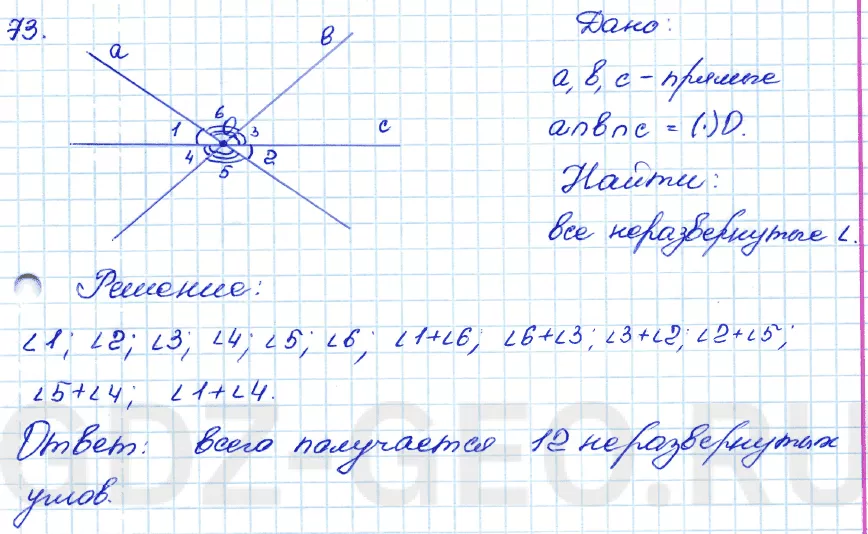 73.
a
в
c
6
O
1
3
4
2
5
Дано:
a, в, c - прямые
a∩в∩c = (·)O.
Найти:
все неразвернутые ∠.
Решение:
∠1; ∠2; ∠3; ∠4; ∠5; ∠6; ∠1+∠6; ∠6+∠3; ∠3+∠2; ∠2+∠5;
∠5+∠4; ∠1+∠4.
Ответ: всего получается 12 неразвернутых
углов.
GDZ-GEO.RU